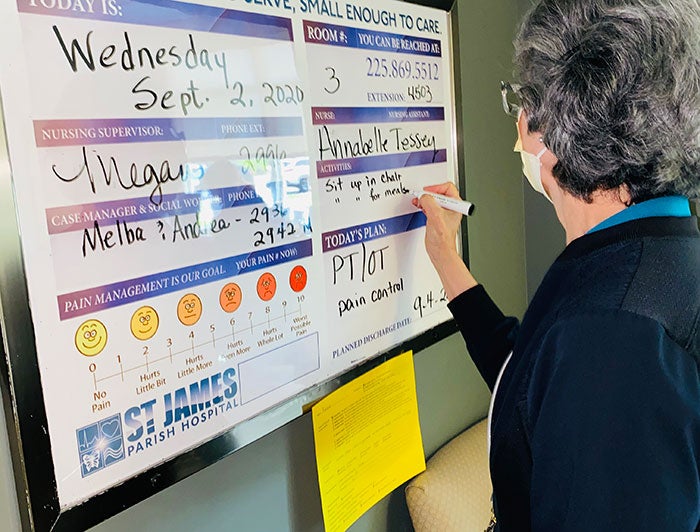 SERVE, SMALL ENOUGH TO CARE.
TODAY IS:
Wednesday
Sept. 2, 2020
NURSING SUPERVISOR: PHONE EXT:
Megan 2996
CASE MANAGER & SOCIAL PHONE
Melba & Andrea - 293
2942
PAIN MANAGEMENT IS OUR GOAL. YOUR PAIN # NOW:
0 1 2 3 4 5 6 7 8 9 10
No Pain
Hurts Little Bit
Hurts Little More
Hurts Even More
Hurts Whole Lot
Worst Possible Pain
ST JAMES
PARISH HOSPITAL
ROOM #: YOU CAN BE REACHED AT:
3 225.869.5512
EXTENSION: 4503
NURSE: NURSING ASSISTANT:
Annabelle Tessey
ACTIVITIES:
Sit up in chair
" " for meals
TODAY'S PLAN:
PT/OT
pain control
PLANNED DISCHARGE DATE: 9.4.2